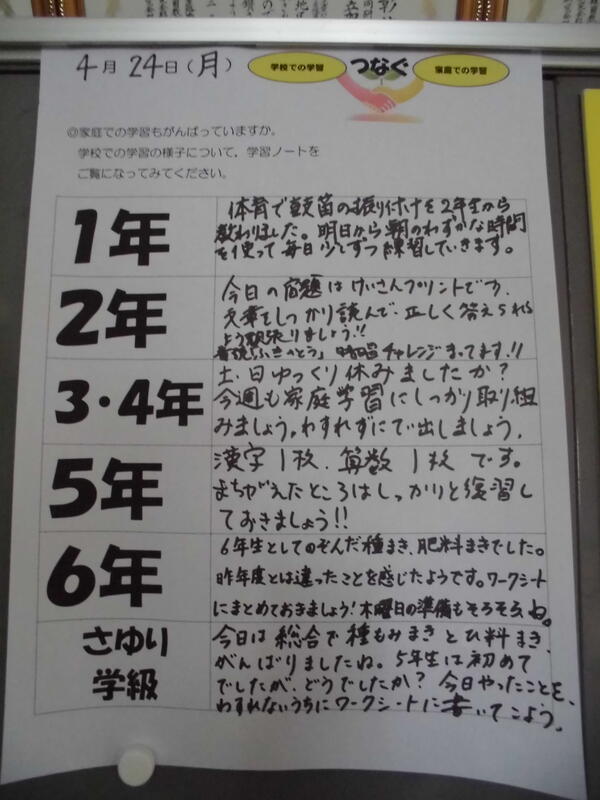 4月 24日(月)
学校での学習 つなぐ 家庭での学習
◎家庭での学習もがんばっていますか。
学校での学習の様子について，学習ノートを
ご覧になってみてください。
1年
体育で鼓笛の振り付けを2年生から
教わりました。明日から朝のわずかな時間
を使って毎日少しずつ練習していきます。
2年
今日の宿題はけいさんプリントです。
文章をしっかり読んで、正しく答えられる
よう頑張りましょう!!
音読「ふきのとう」暗唱チャレンジまってます!!
3・4年
土、日ゆっくり休みましたか?
今週も家庭学習にしっかり取り組
みましょう。わすれずに出しましょう。
5年
漢字1枚、算数1枚です。
まちがえたところはしっかりと復習し
ておきましょう!!
6年
6年生としてのぞんだ種まき、肥料まきでした。
昨年度とは違ったことを感じたようです。ワークシート
にまとめておきましょう!木曜日の準備もそろそろね。
さゆり
学級
今日は総合で種もみまきとひ料まき、
がんばりましたね。5年生は初めて
でしたが、どうでしたか? 今日やったことを、
わすれないうちにワークシートに書いてこよう。